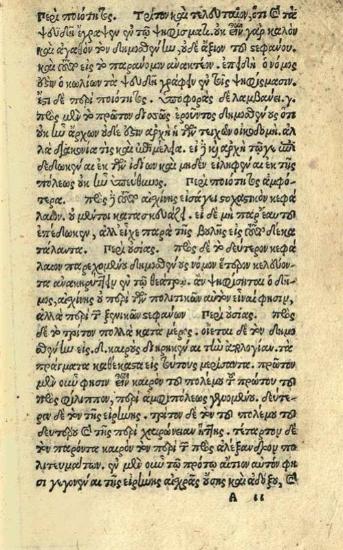 Περὶ ποιότητος. Τρίτον καὶ τελευταῖον, ὅτι τὰ
ψευδῆ ἔγραψεν ἐν τῷ ψηφίσματι. οὐκ εἶναι γὰρ καλὸν
καὶ ἀγαθὸν τὸν Δημοσθένην, οὐδὲ ἄξιον τοῦ στεφάνου.
καὶ τοῦτο εἰς τὸ παράνομον ἀνακτέον. ἐπειδὴ ὁ νόμος
ὁ κωλύων τὰ ψευδῆ γράφειν ἐν τοῖς ψηφίσμασιν.
ἔτι δὲ περὶ ποιότητος. ὑποφορὰς δὲ λαμβάνει. γ.
πρὸς μὲν τὸ πρῶτον ἐροῦντος Δημοσθένους ὅτι
οὐκ ἦν ἄρχων οὐδὲ ἀρχὴ ἡ τειχῶν οἰκοδομὴ. ἀλ
λὰ διακονία τὶς καὶ ἐπιμέλεια. εἰ καὶ ἀρχὴ
δέδωκεν ἐκ τῶν ἰδίων καὶ μηδὲν εἰληφέναι ἐκ τῆς
πόλεως οὐκ ἦν ὑπεύθυνος. Περὶ ποιότητος ἀμφό
τερα. πρὸς τοῦτο αἰσχίνης στοχαστικὸν κεφά
λαιον. κατασκευάζει. εἰ δὲ μὴ παρ' ἑαυτοῦ
ἐπέδωκεν, ἀλλ' εἶχε παρὰ τῆς βουλῆς εἰς τοῦτο δέκα
τάλαντα. Περὶ οὐσίας. πρὸς δὲ τὸ δεύτερον κεφά
λαιον παρεχομένου Δημοσθένους νόμον ἕτερον κελεύοντα
ἀνακηρύττειν ἐν τῷ θεάτρῳ. ἂν ψηφίσηται ὁ δῆμος,
αἰσχίνης οὐ περὶ τῶν πολιτικῶν αὐτὸν εἶναί φησιν,
ἀλλὰ περὶ τῶν ξενικῶν στεφάνων Περὶ οὐσίας. πρὸς
δὲ τὸ τρίτον πολλὰ κατὰ μέρος. οἴεται δὲ τὸν Δημο
σθένην εἰς. δ. καιροὺς διῃρηκέναι τὴν ἀπολογίαν. τὰ
πράγματα καθ' ἕκαστα εἰς τούτους μερίσαντα. πρῶτον
μὲν οὖν φησιν εἶναι καιρὸν τοῦ πολέμου τοῦ πρώτου τοῦ
πρὸς φίλιππον, τοῦ περὶ ἀμφιπόλεως γενομένου. δεύτε
ρον δὲ τὸν τῆς εἰρήνης. τρίτον δὲ τὸν τοῦ πολέμου τοῦ
δευτέρου καὶ τῆς περὶ χαιρώνειαν ἥττης. τέταρτον δὲ
τὸν παρόντα καιρὸν τὸν περὶ τῶν πρὸς ἀλέξανδρον πο
λιτευμάτων. ἐν μὲν οὖν τῷ πρώτῳ αἴτιον αὐτόν φη
σι γεγονέναι τῆς εἰρήνης αἰσχρᾶς οὔσης καὶ ἀδόξου, καὶ
A ii